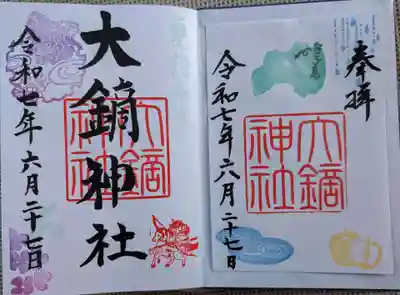 奉拝
大鏑
神社
令和七年六月二十七日
大鏑神社
大鏑
神社
令和七年六月二十七日